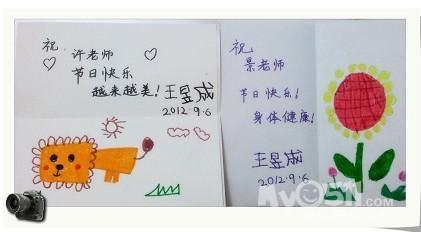 祝
许老师
节日快乐
越来越美!王昱成
2012.9.6
祝
景老师
节日快乐!
身体健康!
王昱成
2012.9.6